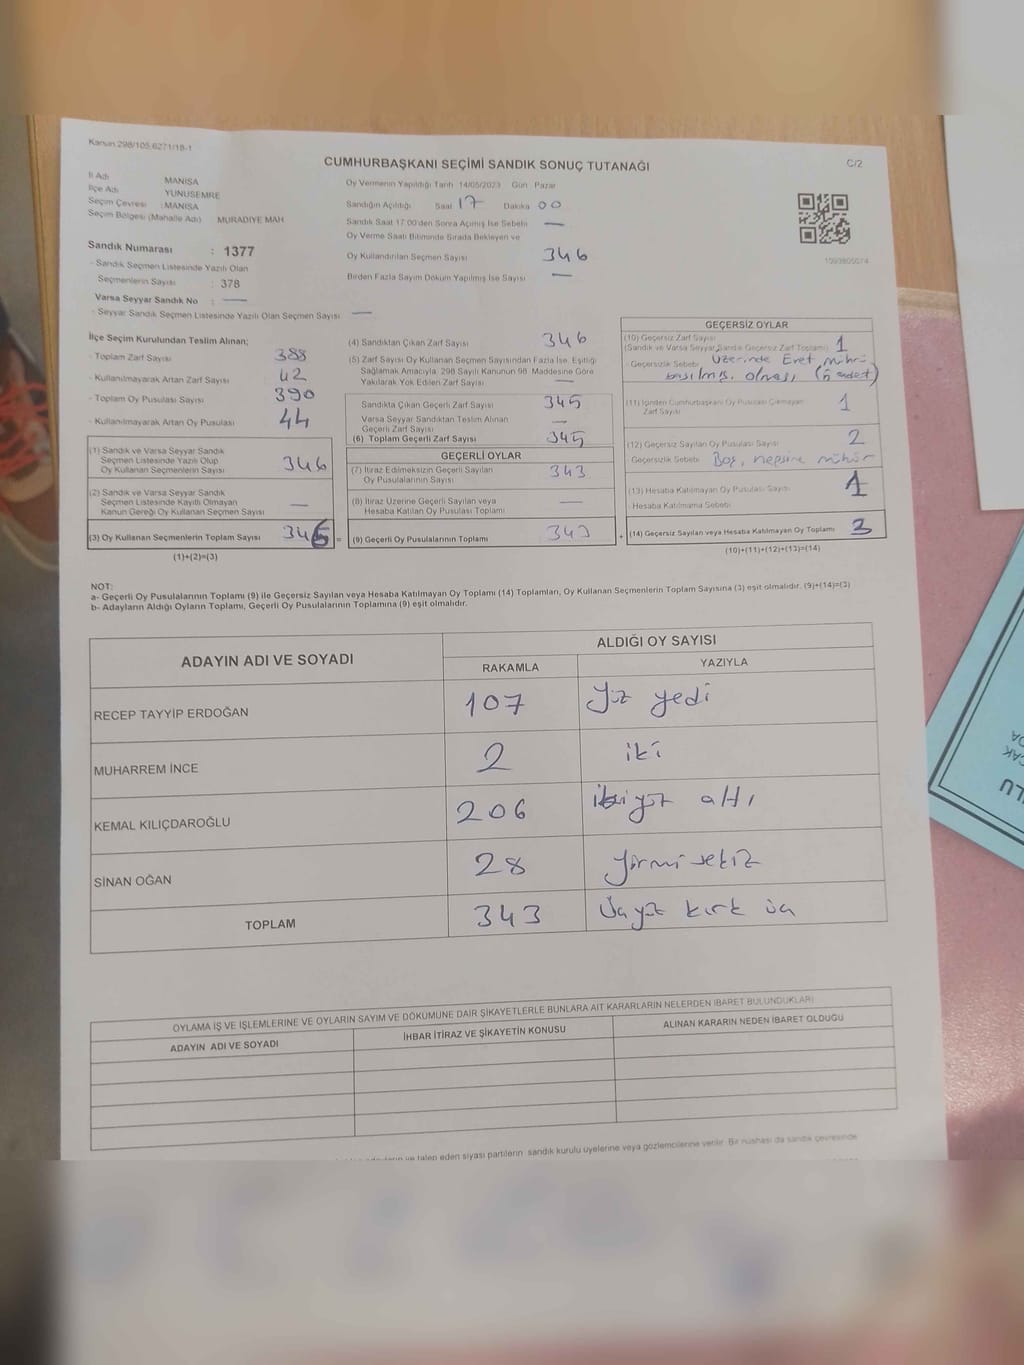 Kanun:298/105,6271/18-1
CUMHURBAŞKANI SEÇİMİ SANDIK SONUÇ TUTANAĞI
C/2
İl Adı : MANİSA
İlçe Adı : YUNUSEMRE
Seçim Çevresi : MANİSA
Seçim Bölgesi (Mahalle Adı) MURADİYE MAH
Sandık Numarası : 1377
- Sandık Seçmen Listesinde Yazılı Olan
Seçmenlerin Sayısı : 378
Varsa Seyyar Sandık No : —
- Seyyar Sandık Seçmen Listesinde Yazılı Olan Seçmen Sayısı —
Oy Vermenin Yapıldığı Tarih 14/05/2023 Gün Pazar
Sandığın Açıldığı Saat 17 Dakika 00
Sandık Saat 17:00'den Sonra Açılmış İse Sebebi —
Oy Verme Saati Bitiminde Sırada Bekleyen ve
Oy Kullandırılan Seçmen Sayısı 346
Birden Fazla Sayım Döküm Yapılmış İse Sayısı —
İlçe Seçim Kurulundan Teslim Alınan;
- Toplam Zarf Sayısı 388
- Kullanılmayarak Artan Zarf Sayısı 42
- Toplam Oy Pusulası Sayısı 390
- Kullanılmayarak Artan Oy Pusulası 44
(1) Sandık ve Varsa Seyyar Sandık
Seçmen Listesinde Yazılı Olup
Oy Kullanan Seçmenlerin Sayısı 346
(2) Sandık ve Varsa Seyyar Sandık
Seçmen Listesinde Kayıtlı Olmayan
Kanun Gereği Oy Kullanan Seçmen Sayısı —
(3) Oy Kullanan Seçmenlerin Toplam Sayısı 346 =
(1)+(2)=(3)
(4) Sandıktan Çıkan Zarf Sayısı 346
(5) Zarf Sayısı Oy Kullanan Seçmen Sayısından Fazla İse, Eşitliği
Sağlamak Amacıyla, 298 Sayılı Kanunun 98. Maddesine Göre
Yakılarak Yok Edilen Zarf Sayısı —
Sandıkta Çıkan Geçerli Zarf Sayısı 345
Varsa Seyyar Sandıktan Teslim Alınan
Geçerli Zarf Sayısı —
(6) Toplam Geçerli Zarf Sayısı 345
GEÇERLİ OYLAR
(7) İtiraz Edilmeksizin Geçerli Sayılan
Oy Pusulalarının Sayısı 343
(8) İtiraz Üzerine Geçerli Sayılan veya
Hesaba Katılan Oy Pusulası Toplamı —
(9) Geçerli Oy Pusulalarının Toplamı 343 +
GEÇERSİZ OYLAR
(10) Geçersiz Zarf Sayısı
(Sandık ve Varsa Seyyar Sandık Geçersiz Zarf Toplamı) 1
- Geçersizlik Sebebi: Üzerinde Evet mührü
basılmış olması
(11) İçinden Cumhurbaşkanı Oy Pusulası Çıkmayan
Zarf Sayısı 1
(12) Geçersiz Sayılan Oy Pusulası Sayısı 2
- Geçersizlik Sebebi Boş, hepsine mühür
(13) Hesaba Katılmayan Oy Pusula Sayısı 1
- Hesaba Katılmama Sebebi
(14) Geçersiz Sayılan veya Hesaba Katılmayan Oy Toplamı 3
(10)+(11)+(12)+(13)=(14)
NOT:
a- Geçerli Oy Pusulalarının Toplamı (9) ile Geçersiz Sayılan veya Hesaba Katılmayan Oy Toplamı (14) Toplamları, Oy Kullanan Seçmenlerin Toplam Sayısına (3) eşit olmalıdır. (9)+(14)=(3)
b- Adayların Aldığı Oyların Toplamı, Geçerli Oy Pusulalarının Toplamına (9) eşit olmalıdır.
ADAYIN ADI VE SOYADI
ALDIĞI OY SAYISI
RAKAMLA YAZIYLA
RECEP TAYYİP ERDOĞAN 107 Yüz yedi
MUHARREM İNCE 2 iki
KEMAL KILIÇDAROĞLU 206 ikiyüz altı
SİNAN OĞAN 28 Yirmi sekiz
TOPLAM 343 Üçyüz kırk üç
OYLAMA İŞ VE İŞLEMLERİNE VE OYLARIN SAYIM VE DÖKÜMÜNE DAİR ŞİKAYETLERLE BUNLARA AİT KARARLARIN NELERDEN İBARET BULUNDUKLARI
ADAYIN ADI VE SOYADI İHBAR İTİRAZ VE ŞİKAYETİN KONUSU ALINAN KARARIN NEDEN İBARET OLDUĞU
ve talep eden siyasi partilerin sandık kurulu üyelerine veya gözlemcilerine verilir. Bir nüshası da sandık çevresinde